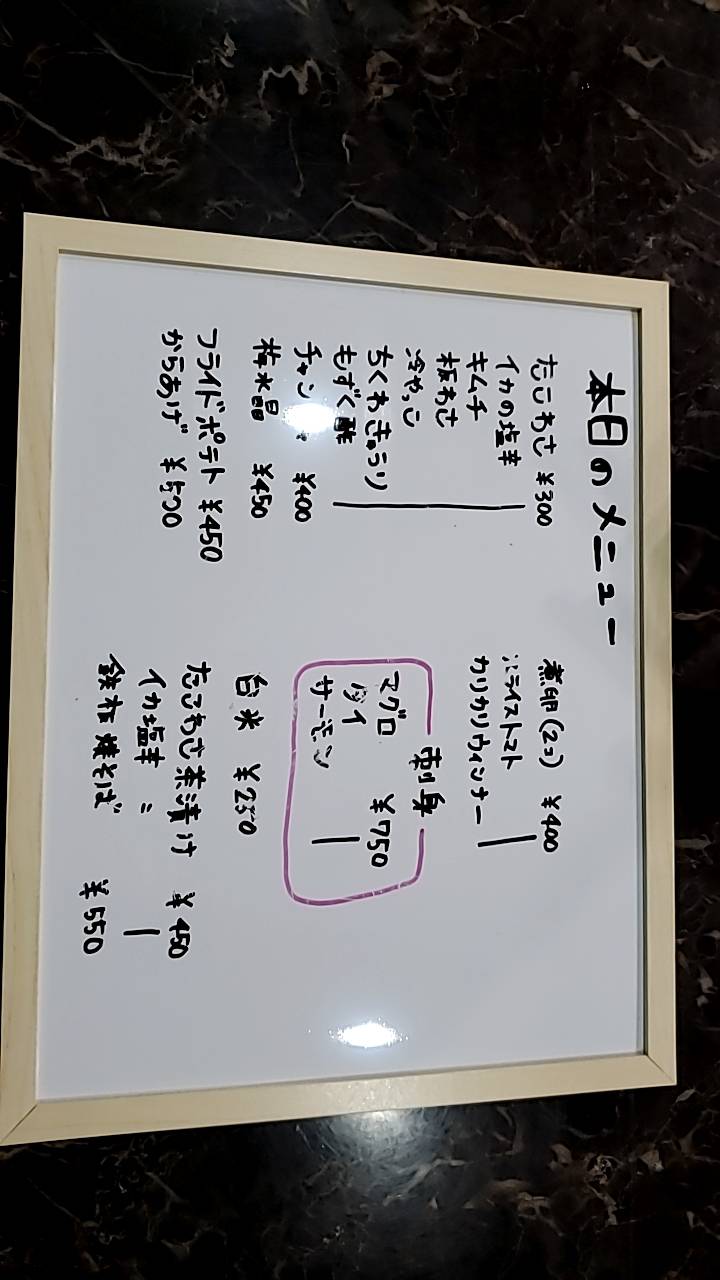 本日のメニュー
たこわさ ¥300
イカの塩辛
キムチ
板わさ
冷やっこ
ちくわきゅうり
もずく酢
チャン ¥400
梅水晶 ¥450
フライドポテト ¥450
からあげ ¥500
煮卵(2コ) ¥400
ドライストマト
カリカリウィンナー
刺身
マグロ ¥750
タイ
サーモン
白米 ¥250
たこわさ茶漬け ¥450
イカ塩辛 〃
鉄板焼そば ¥550